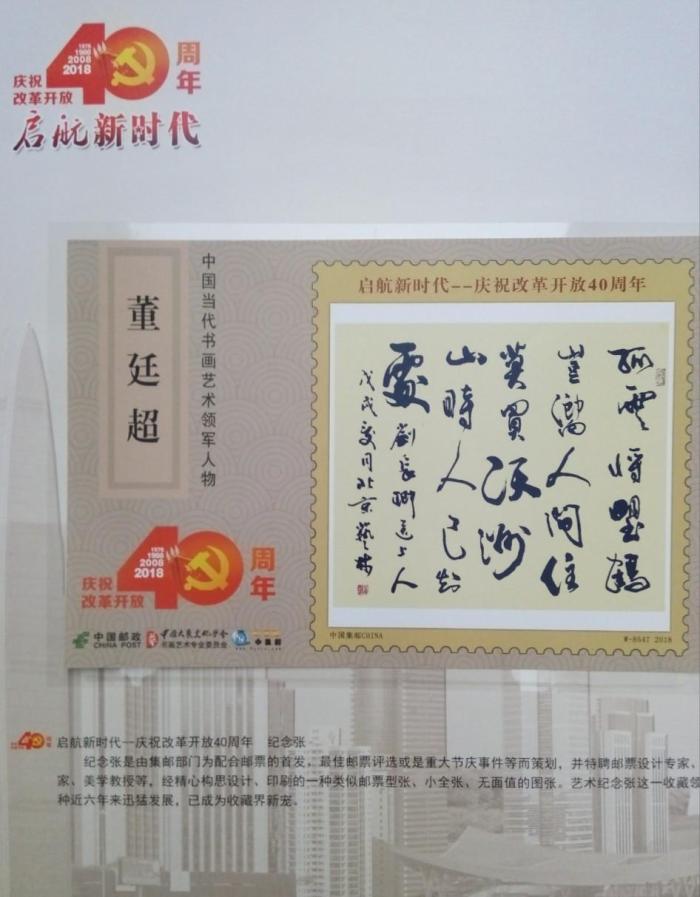 庆祝
改革开放
40
1978
1988
2008
2018
周年
启航新时代
董廷超
中国当代书画艺术领军人物
庆祝
改革开放
40
1978
1988
2008
2018
周年
中国邮政
CHINA POST
书画艺术专业委员会
启航新时代--庆祝改革开放40周年
孤云将野鹤
岂向人间住
莫买沃洲
山时人已知
处 刘长卿送上人
戊戌夏月北京
中国集邮CHINA
W-8647 2018
40
启航新时代—庆祝改革开放40周年 纪念张
纪念张是由集邮部门为配合邮票的首发，最佳邮票评选或是重大节庆事件等而策划，并特聘邮票设计专家、
家、美学教授等，经精心构思设计、印刷的一种类似邮票型张、小全张、无面值的图张。艺术纪念张这一收藏领
种近六年来迅猛发展，已成为收藏界新宠。